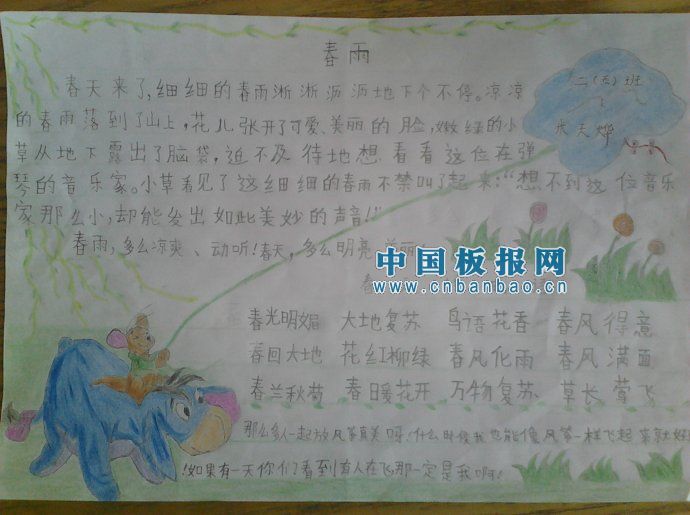 春雨
春天来了,细细的春雨淅淅沥沥地下个不停。凉凉
的春雨落到了山上,花儿张开了可爱、美丽的脸,嫩绿的小
草从地下露出了脑袋,迫不及待地想看看这位在弹
琴的音乐家。小草看见了这细细的春雨不禁叫了起来:“想不到这位音乐
家那么小,却能发出如此美妙的声音!”
春雨,多么凉爽、动听!春天,多么明亮、美丽!
二(五)班
天烨
中国板报网
www.cnbanbao.cn
春
春光明媚 大地复苏 鸟语花香 春风得意
春回大地 花红柳绿 春风化雨 春风满面
春兰秋菊 春暖花开 万物复苏 草长莺飞
那么多人一起放风筝真美呀!什么时候我也能像风筝一样飞起来就好
!如果有一天你们看到有人在飞,那一定是我啊!